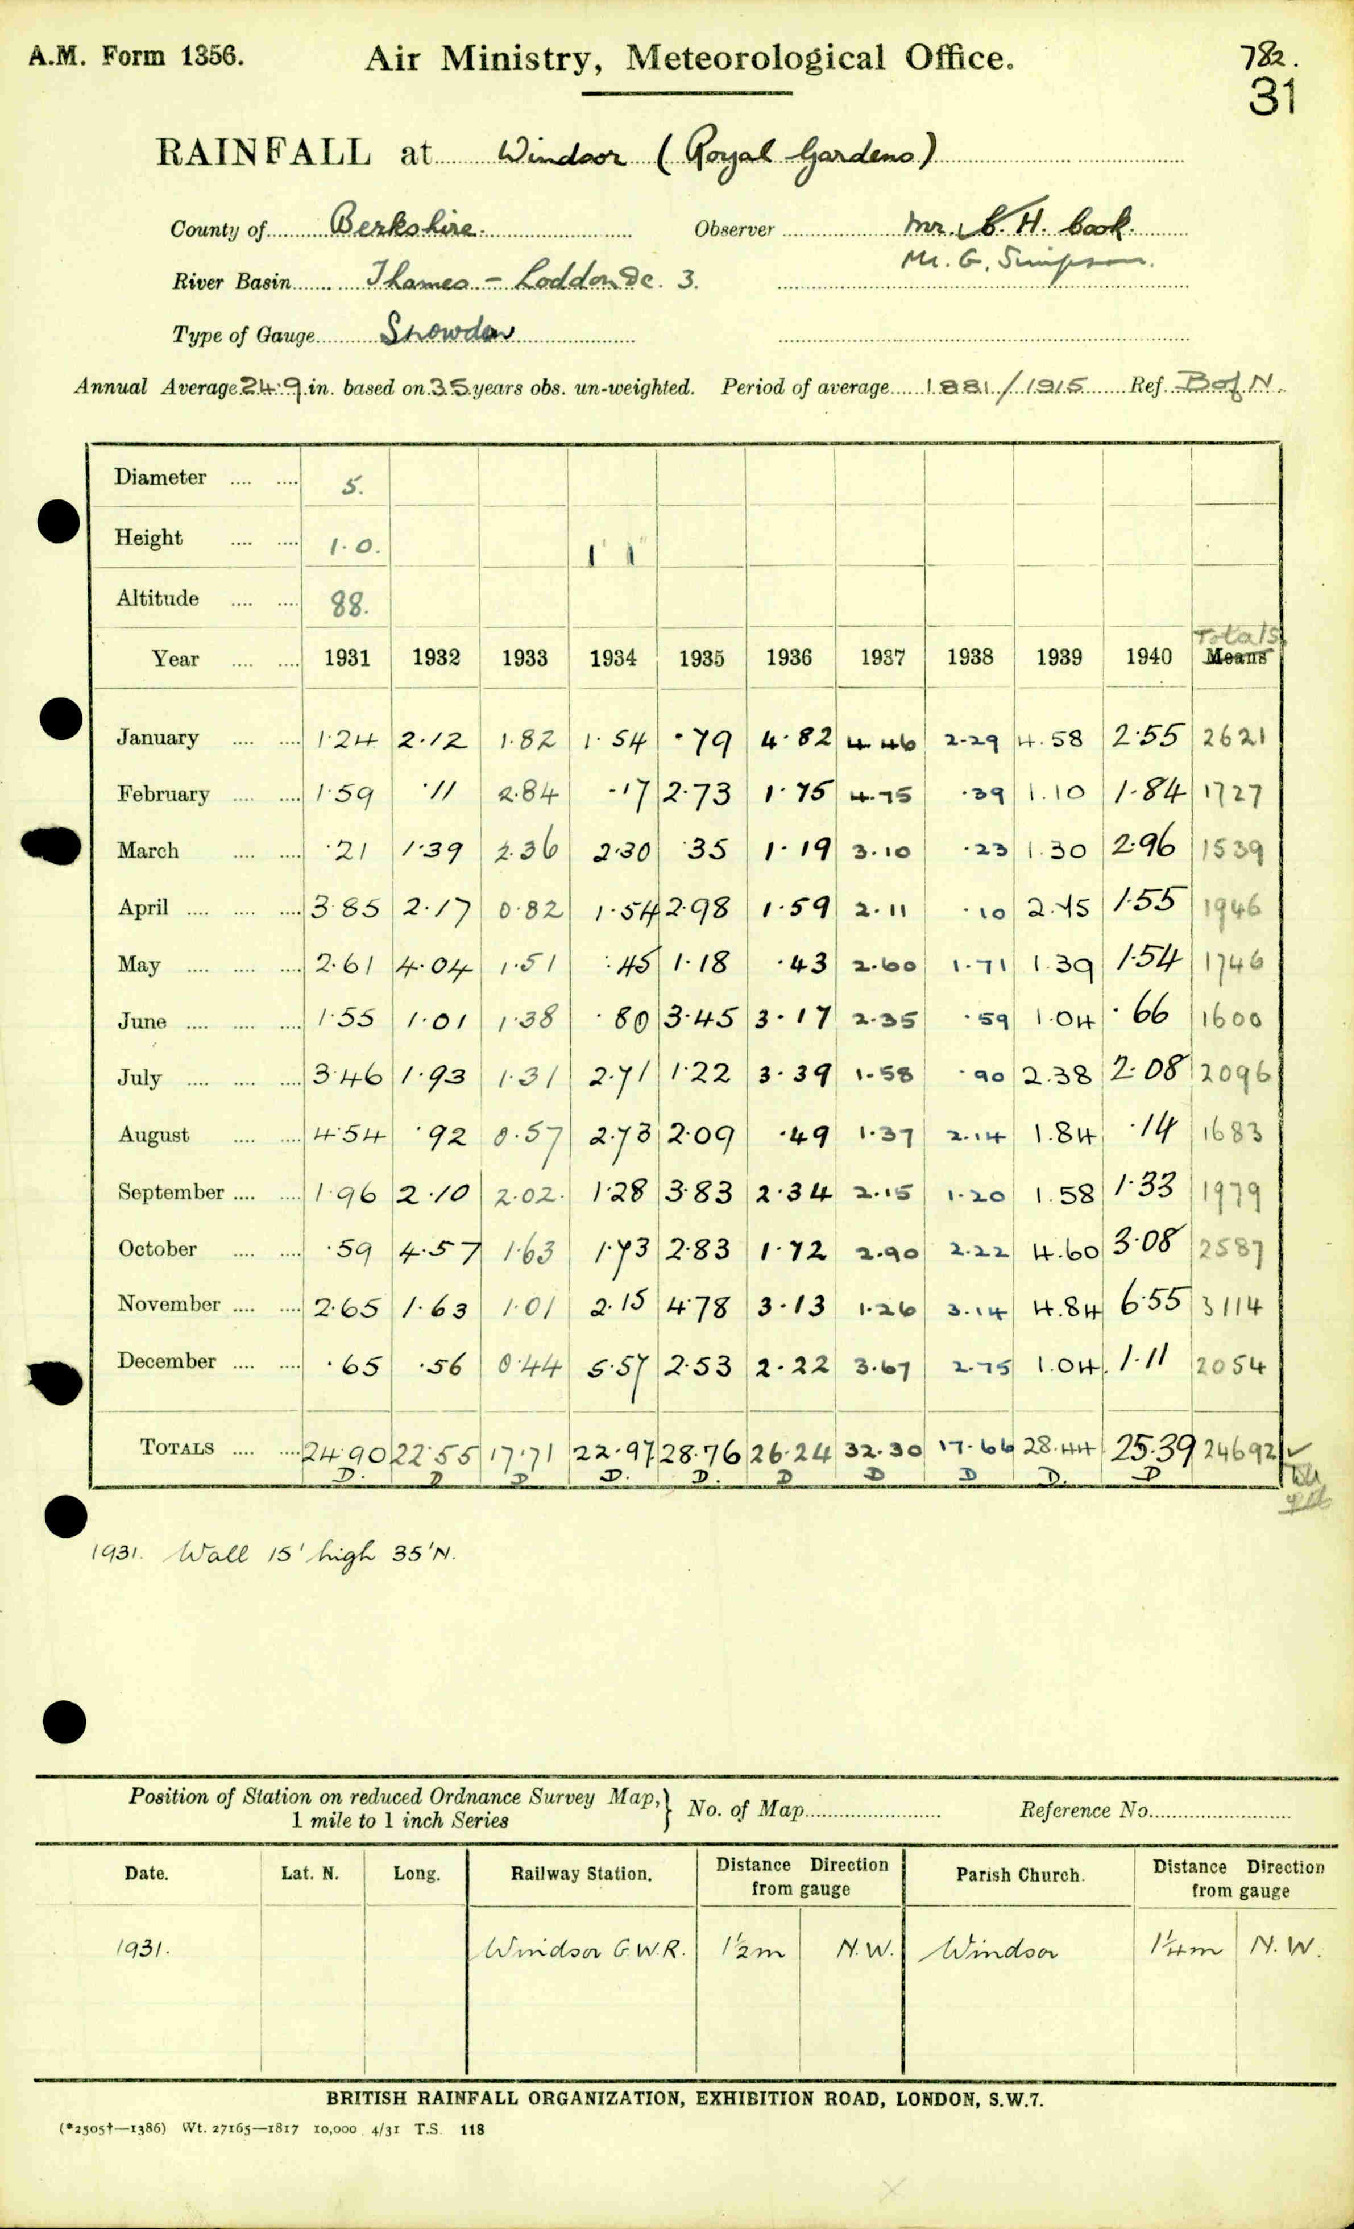 A.M. Form 1356.
Air Ministry, Meteorological Office.
782.
31
RAINFALL at Windsor (Royal Gardens)
County of Berkshire. Observer Mr. C. H. Cook.
Mr. G. Simpson.
River Basin Thames - Loddon &c. 3.
Type of Gauge Snowdon
Annual Average 24.9 in. based on 35 years obs. un-weighted. Period of average 1881/1915 Ref. B of N.
Diameter 5.
Height 1.0. 1' 1"
Altitude 88.
Totals
Year 1931 1932 1933 1934 1935 1936 1937 1938 1939 1940 Means
January 1.24 2.12 1.82 1.54 .79 4.82 4.46 2.29 4.58 2.55 2621
February 1.59 .11 2.84 .17 2.73 1.75 4.75 .39 1.10 1.84 1727
March .21 1.39 2.36 2.30 .35 1.19 3.10 .23 1.30 2.96 1539
April 3.85 2.17 0.82 1.54 2.98 1.59 2.11 .10 2.75 1.55 1946
May 2.61 4.04 1.51 .45 1.18 .43 2.60 1.71 1.39 1.54 1746
June 1.55 1.01 1.38 .80 3.45 3.17 2.35 .59 1.04 .66 1600
July 3.46 1.93 1.31 2.71 1.22 3.39 1.58 .90 2.38 2.08 2096
August 4.54 .92 0.57 2.73 2.09 .49 1.37 2.14 1.84 .14 1683
September 1.96 2.10 2.02. 1.28 3.83 2.34 2.15 1.20 1.58 1.33 1979
October .59 4.57 1.63 1.73 2.83 1.72 2.90 2.22 4.60 3.08 2587
November 2.65 1.63 1.01 2.15 4.78 3.13 1.26 3.14 4.84 6.55 3114
December .65 .56 0.44 5.57 2.53 2.22 3.67 2.75 1.04. 1.11 2054
TOTALS 24.90 22.55 17.71 22.97 28.76 26.24 32.30 17.66 28.44 25.39 24692 ✓
D. D D D. D. D D D D. D
1931. Wall 15' high 35'N.
Position of Station on reduced Ordnance Survey Map, 1 mile to 1 inch Series } No. of Map Reference No.
Date. Lat. N. Long. Railway Station. Distance Direction from gauge Parish Church. Distance Direction from gauge
1931. Windsor G.W.R. 1½m N.W. Windsor 1¼m N.W.
BRITISH RAINFALL ORGANIZATION, EXHIBITION ROAD, LONDON, S.W.7.
(*2505†—1386) Wt. 27165—1817 10,000 4/31 T.S. 118